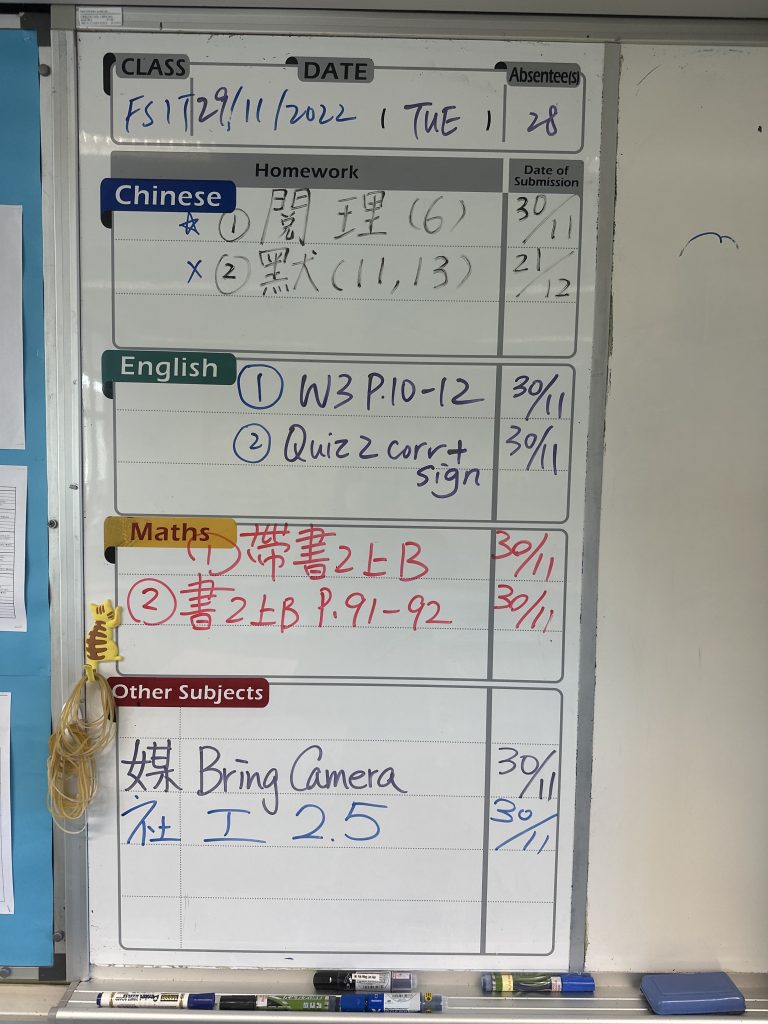 CLASS DATE Absentee(s)
FS1T 29/11/2022 , TUE , 28
Homework Date of Submission
Chinese
☆ ① 閱理(6) 30/11
X ② 默(11,13) 21/12
English
① W3 P.10-12 30/11
② Quiz 2 corr+ 30/11
sign
Maths
① 帶書2上B 30/11
② 書2上B P.91-92 30/11
Other Subjects
媒 Bring Camera 30/11
社 工 2.5 30/11